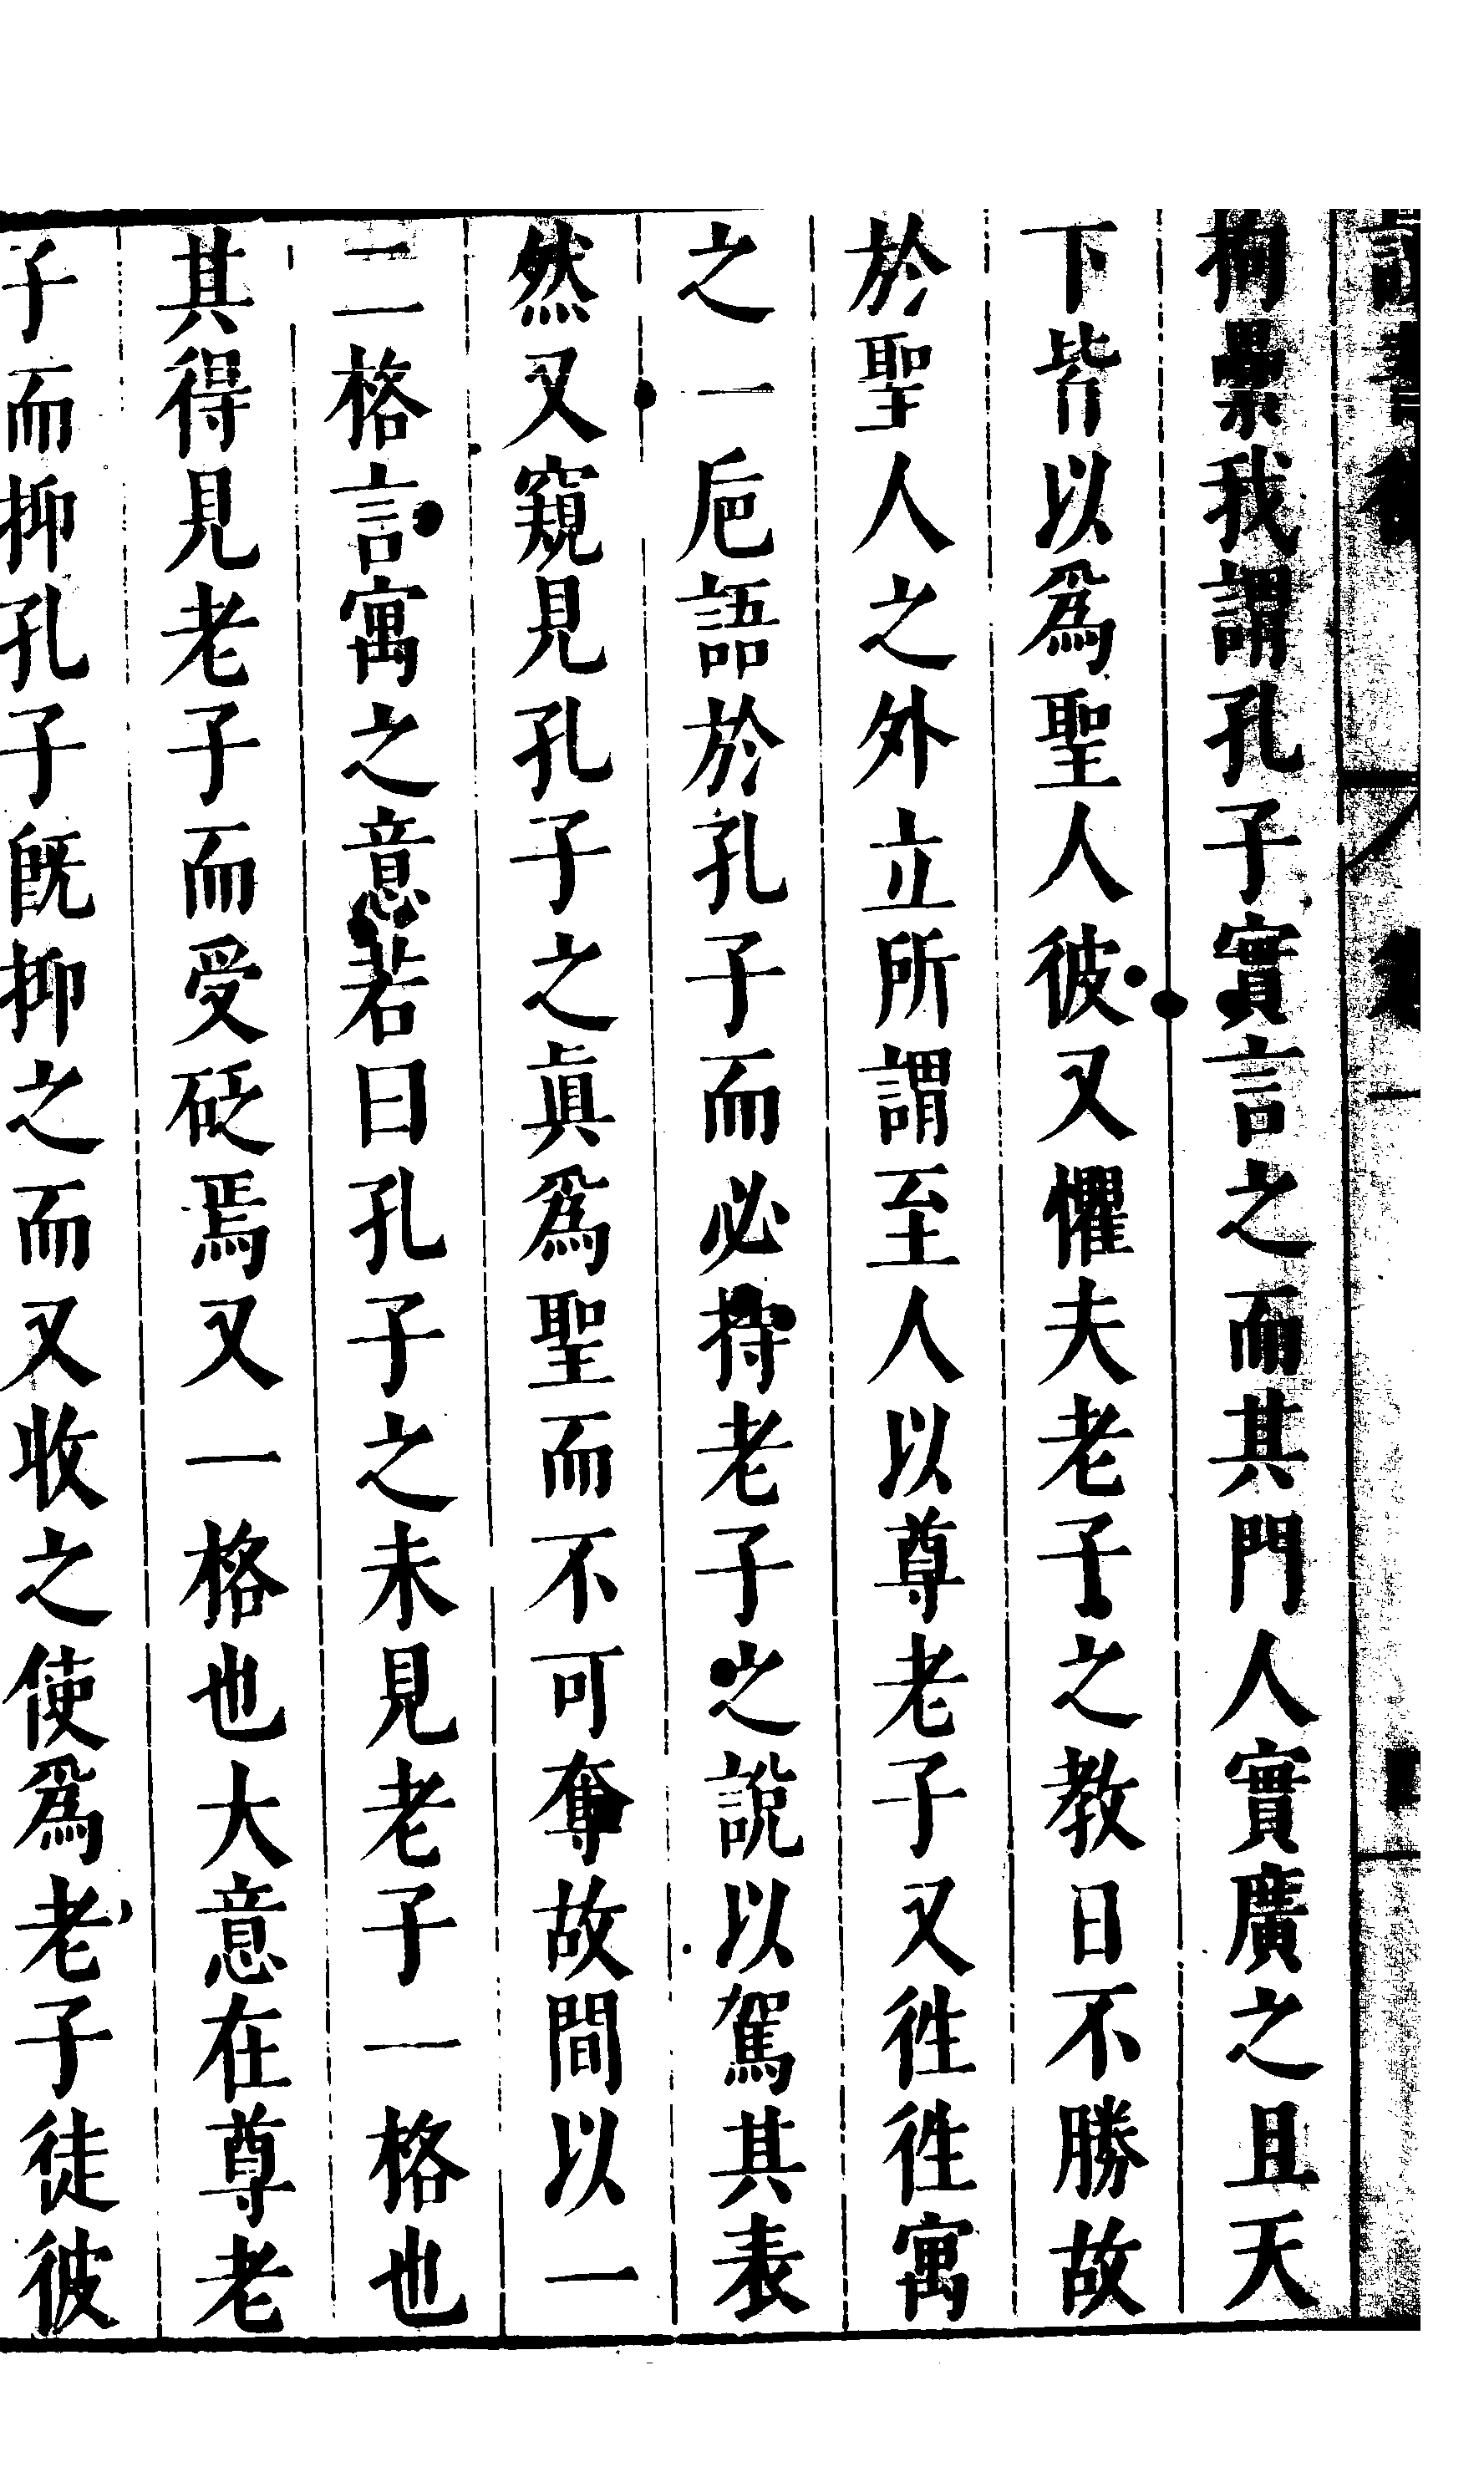 讀書後 卷一
拘纍我謂孔子實言之而其門人實廣之且天
下皆以爲聖人彼又懼夫老子之教日不勝故
於聖人之外立所謂至人以尊老子又徃徃寓
之一巵語於孔子而必待老子之說以駕其表
然又窺見孔子之眞爲聖而不可奪故間以一
二格言寓之意若曰孔子之未見老子一格也
其得見老子而受砭焉又一格也大意在尊老
子而抑孔子旣抑之而又收之使爲老子徒彼